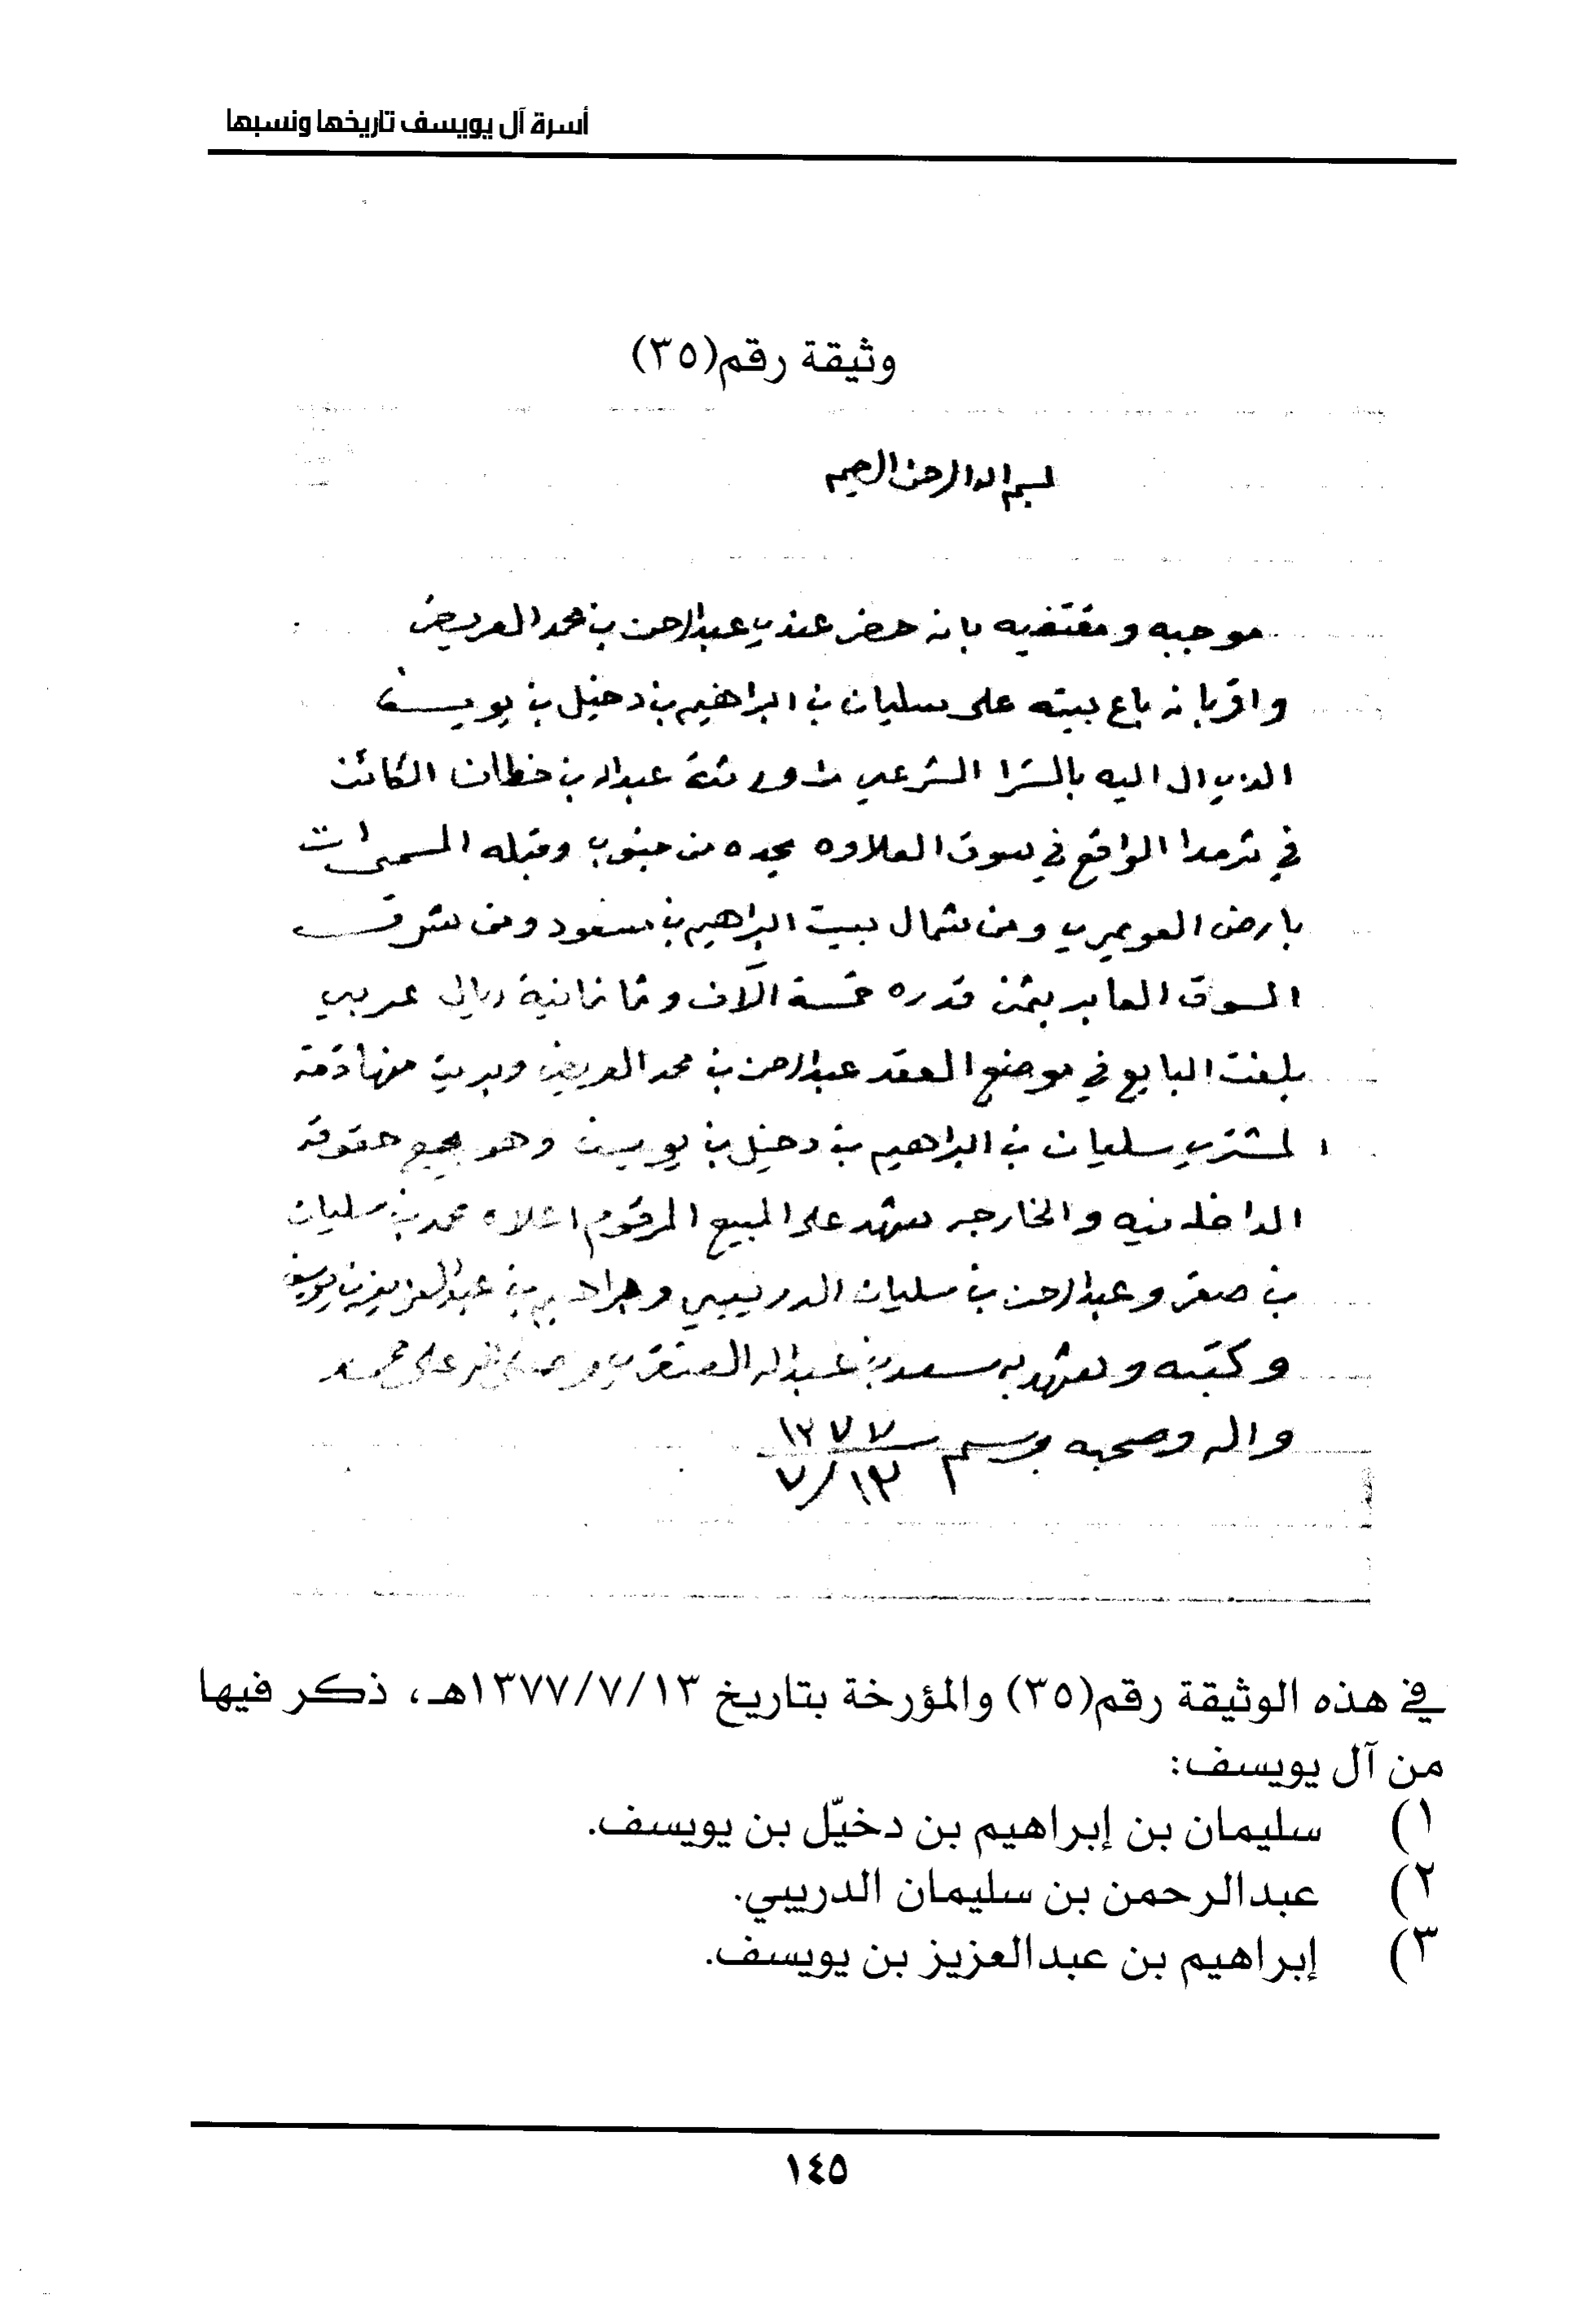 أسرة آل يويسف تاريخها ونسبها
وثيقة رقم(٣٥)
بسم الله الرحمن الرحيم
موجبه ومقتضيه بانه حضر عندي عبدالرحمن بن محمد العريض
واقر بانه باع بيته على سليمان بن ابراهيم بن دخيل بن يويسف
الذي ال اليه بالشرا الشرعي من ورثة عبدالله بن خطان الكائن
في ثرمدا الواقع في سوق العلاوه يحده من جنوب وقبله المسمى
بارض العويمري ومن شمال بيت ابراهيم بن سعود ومن شرق
السوق العابر بثمن قدره خمسة الآف وثمانمانية ريال عربي
بلغت البايع في موضع العقد عبدالرحمن بن محمد العريض وبريت منها ذمة
المشتري سليمان بن ابراهيم بن دخيل بن يويسف وهو بجميع حقوقه
الداخله فيه والخارجه شهد على المبيع المرقوم اعلاه محمد بن سليمان
بن صقر وعبدالرحمن بن سليمان الدريبي وابراهيم بن عبدالعزيز بن يويسف
وكتبه وشهد به سعد بن عبدالله الصنقر وصلى الله على محمد
واله وصحبه وسلم ١٣٧٧
٧/١٣
في هذه الوثيقة رقم(٣٥) والمؤرخة بتاريخ ١٣٧٧/٧/١٣هـ، ذكر فيها
من آل يويسف:
١) سليمان بن إبراهيم بن دخيّل بن يويسف.
٢) عبدالرحمن بن سليمان الدريبي.
٣) إبراهيم بن عبدالعزيز بن يويسف.
١٤٥